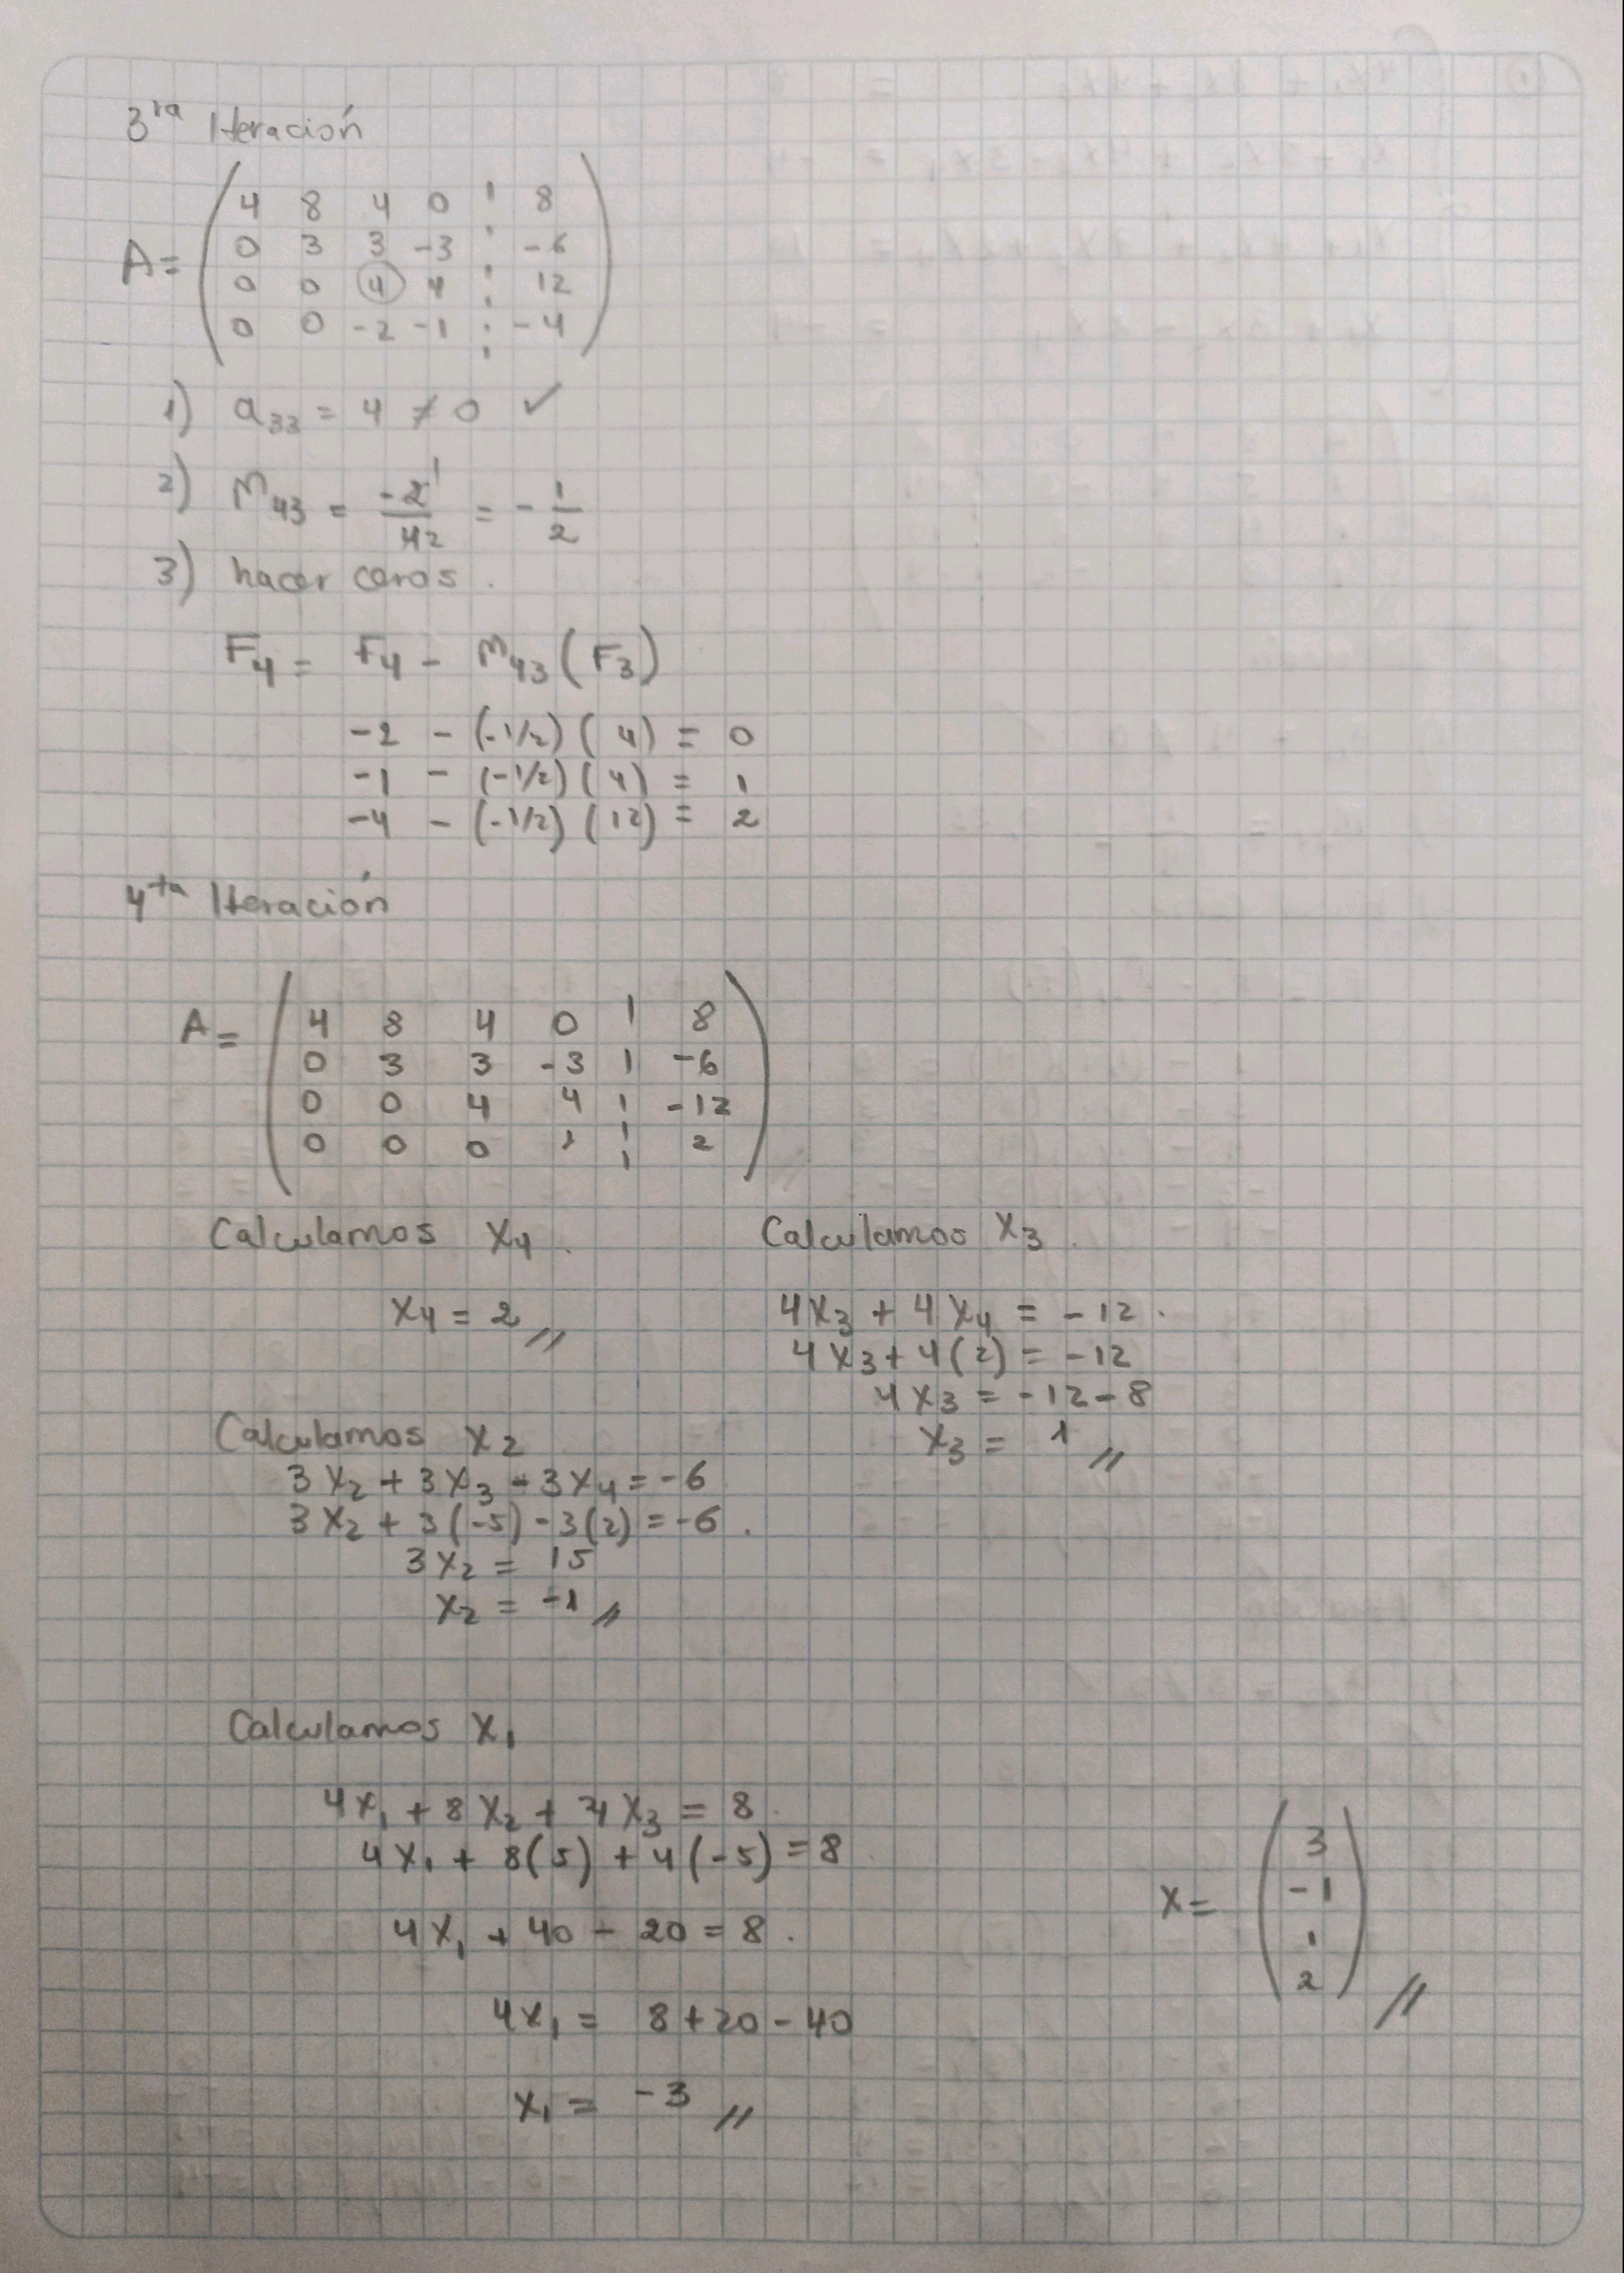 3ra Iteración
A=
4 8 4 0 ¦ 8
0 3 3 -3 ¦ -6
0 0 4 4 ¦ 12
0 0 -2 -1 ¦ -4
1) a33 = 4 ≠ 0 ✓
2) m43 = -2 1 / 4 2 = - 1/2
3) hacer ceros.
F4 = F4 - m43 (F3)
-2 - (-1/2) ( 4) = 0
-1 - (-1/2) ( 4) = 1
-4 - (-1/2) (12) = 2
4ta Iteración
A=
4 8 4 0 ¦ 8
0 3 3 -3 ¦ -6
0 0 4 4 ¦ -12
0 0 0 1 ¦ 2
Calculamos x4.
x4 = 2 //
Calculamos x3.
4x3 + 4x4 = -12.
4x3 + 4(2) = -12
4x3 = -12-8
x3 = 1 //
Calculamos x2
3x2 + 3x3 - 3x4 = -6
3x2 + 3(-5) - 3(2) = -6.
3x2 = 15
x2 = -1 //
Calculamos x1
4x1 + 8x2 + 4x3 = 8.
4x1 + 8(5) + 4(-5) = 8.
4x1 + 40 - 20 = 8.
4x1 = 8+20-40
x1 = -3 //
x=
3
-1
1
2
//